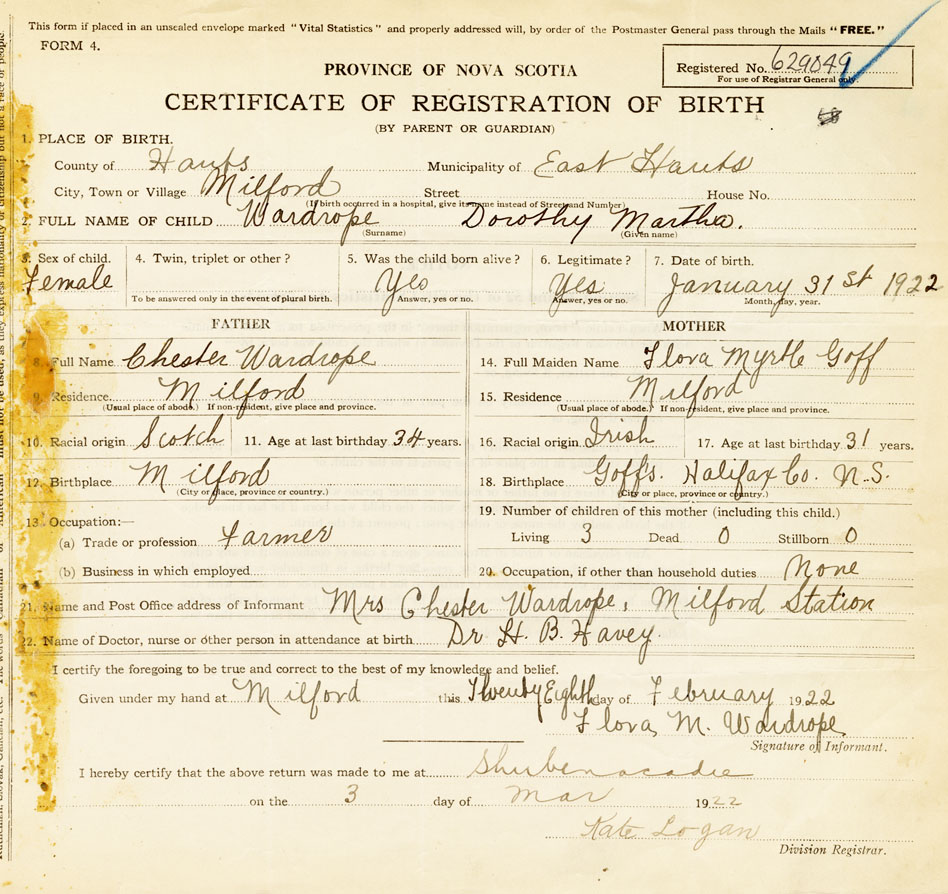 This form if placed in an unsealed envelope marked "Vital Statistics" and properly addressed will, by order of the Postmaster General pass through the Mails "FREE."
FORM 4.
Registered No. 629049
For use of Registrar General only.
PROVINCE OF NOVA SCOTIA
CERTIFICATE OF REGISTRATION OF BIRTH
(BY PARENT OR GUARDIAN)
1. PLACE OF BIRTH.
County of Hants Municipality of East Hants
City, Town or Village Milford Street House No.
(If birth occurred in a hospital, give its name instead of Street and Number)
2. FULL NAME OF CHILD Wardrope Dorothy Martha.
(Surname) (Given name)
3. Sex of child. 4. Twin, triplet or other? 5. Was the child born alive? 6. Legitimate? 7. Date of birth.
Female Yes Yes January 31st 1922
To be answered only in the event of plural birth. Answer, yes or no. Answer, yes or no. Month, day, year.
FATHER MOTHER
8. Full Name Chester Wardrope 14. Full Maiden Name Flora Myrtle Goff
9. Residence Milford 15. Residence Milford
(Usual place of abode.) If non-resident, give place and province. (Usual place of abode.) If non-resident, give place and province.
10. Racial origin Scotch 11. Age at last birthday 34 years. 16. Racial origin Irish 17. Age at last birthday 31 years.
12. Birthplace Milford 18. Birthplace Goffs. Halifax Co. N.S.
(City or place, province or country.) (City or place, province or country.)
13. Occupation:— 19. Number of children of this mother (including this child.)
(a) Trade or profession Farmer Living 3 Dead 0 Stillborn 0
(b) Business in which employed 20. Occupation, if other than household duties None
21. Name and Post Office address of Informant Mrs Chester Wardrope, Milford Station
22. Name of Doctor, nurse or other person in attendance at birth Dr H. B. Havey.
I certify the foregoing to be true and correct to the best of my knowledge and belief.
Given under my hand at Milford this Twenty Eighth day of February 1922
Flora M. Wardrope
Signature of Informant.
I hereby certify that the above return was made to me at Shubenacadie
on the 3 day of Mar 1922
Kate Logan
Division Registrar.